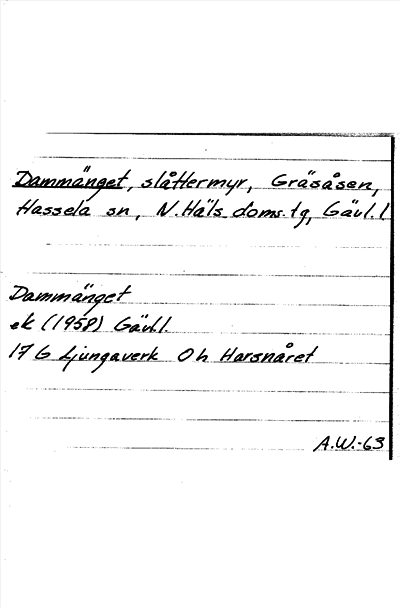 Dammänget, slåttermyr, Gräsåsen,
Hassela sn, N. Häls. doms. tg, Gävl. l
Dammänget
ek (1958) Gävl. l.
17 G Ljungaverk 0 h Harsnåret
A.W.-63